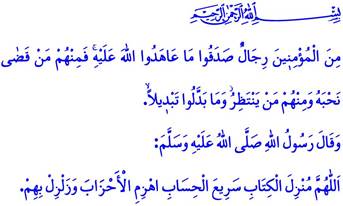 بِسْمِ اللهِ الرَّحْمٰنِ الرَّحِيمِ
مِنَ الْمُؤْمِنِينَ رِجَالٌ صَدَقُوا مَا عَاهَدُوا اللهَ عَلَيْهِۚ فَمِنْهُمْ مَنْ قَضٰى
نَحْبَهُ وَمِنْهُمْ مَنْ يَنْتَظِرُۘ وَمَا بَدَّلُوا تَبْدِيلاًۙ.
وَقَالَ رَسُولُ اللهِ صَلَّى اللهُ عَلَيْهِ وَسَلَّمَ:
اَللّٰهُمَّ مُنْزِلَ الْكِتَابِ سَرِيعَ الْحِسَابِ اهْزِمِ الْأَحْزَابَ وَزَلْزِلْ بِهِمْ.